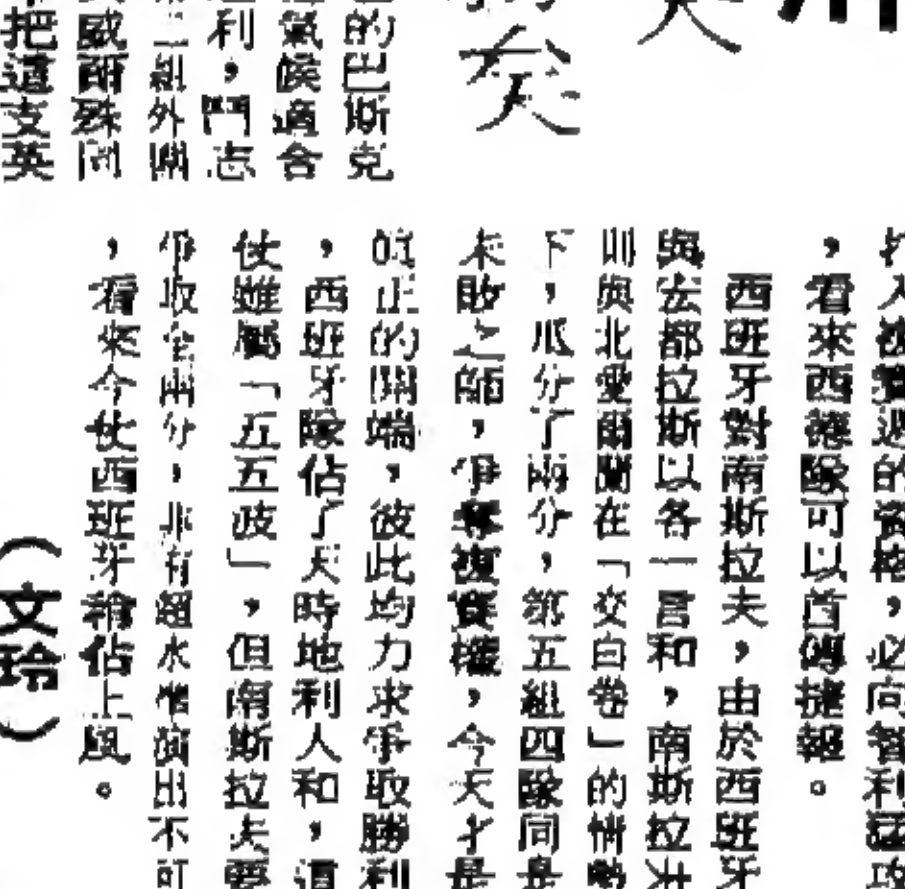 打入複賽週的資格,必向智利猛攻
,看來西德隊可以首傳捷報。
西班牙對南斯拉夫,由於西班牙
與宏都拉斯以各一言和,南斯拉夫
則與北愛爾蘭在「交白卷」的情勢
下,瓜分了兩分,第五組四隊同是
未敗之師,爭奪複賽權,今天才是
真正的開端,彼此均力求爭取勝利
,西班牙隊佔了天時地利人和,這
仗雖屬「五五波」,但南斯拉夫要
爭取全兩分,非有超水準演出不可
,看來今仗西班牙稍佔上風。
(文玲)
的巴斯克
氣候適合
利,鬥志
組外關
威爾殊同
把這支英